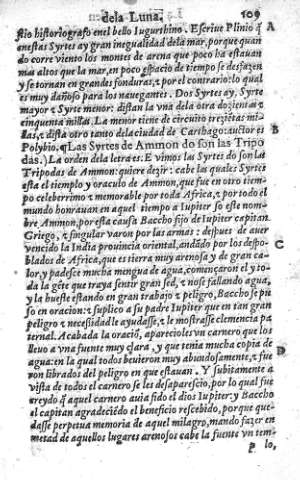 dela Luna. 109
stio historiografo enel bello Iugurthino. Escriue Plinio q̃ A
anestas Syrtes ay gran inegualidad dela mar, porque quan
do corre viento los montes de arena que poco ha estauan
mas altos que la mar, en poco espacio de tiempo se desfazen
y se tornan en grandes fonduras, z por el contrario: lo qual
es muy dañoso para los nauegantes. Dos Syrtes ay, Syrte
mayor z Syrte menor: distan la vna dela otra dozientas z
cinquenta millas. La menor tiene de circuito trezientas mi-
llas, z dista otro tanto dela ciudad de Carthago: auctor es B
Polybio. ¶Las Syrtes de Ammon do son las Tripo
das.) La orden dela letra es: E vimos las Syrtes do son las
Tripodas de Ammon: quiere dezir: cabe las quales Syrtes
esta el tiemplo y oraculo de Ammon, que fue en otro tiem-
po celeberrimo z memorable por toda Africa, z por todo el
mundo honrauan en aquel tiempo a Iupiter so este nom-
bre Ammon, por esta causa Baccho fijo de Iupiter capitan
Griego, z singular varon por las armas: despues de auer
vencido la India prouincia oriental, andãdo por los despo- C
blados de Africa, que es tierra muy arenosa y de gran ca-
lor, y padesce mucha mengua de agua, començaron el y to-
da la gẽte que traya sentir gran sed, z nose fallando agua,
y la hueste estando en gran trabajo z peligro, Baccho se pu
so en oracion: z suplico a su padre Iupiter que en tan gran
peligro z necessidad le ayudasse, z le mostrasse clemencia pa
ternal. Acabada la oraciõ, aparescioles vn carnero que los
lleuo a vna fuente muy clara, y que tenia mucha copia de
agua: en la qual todos beuieron muy abundosamente, z fue D
ron librados del peligro en que estauan. Y subitamente a
vista de todos el carnero se les desaparescio, por lo qual fue
creydo q̃ aquel carnero auia sido el dios Iupiter: y Baccho
el capitan agradeciẽdo el beneficio rescebido, porque que-
dasse perpetua memoria de aquel milagro, mando fazer en
metad de aquellos lugares arenosos cabe la fuente vn tem-
p lo,